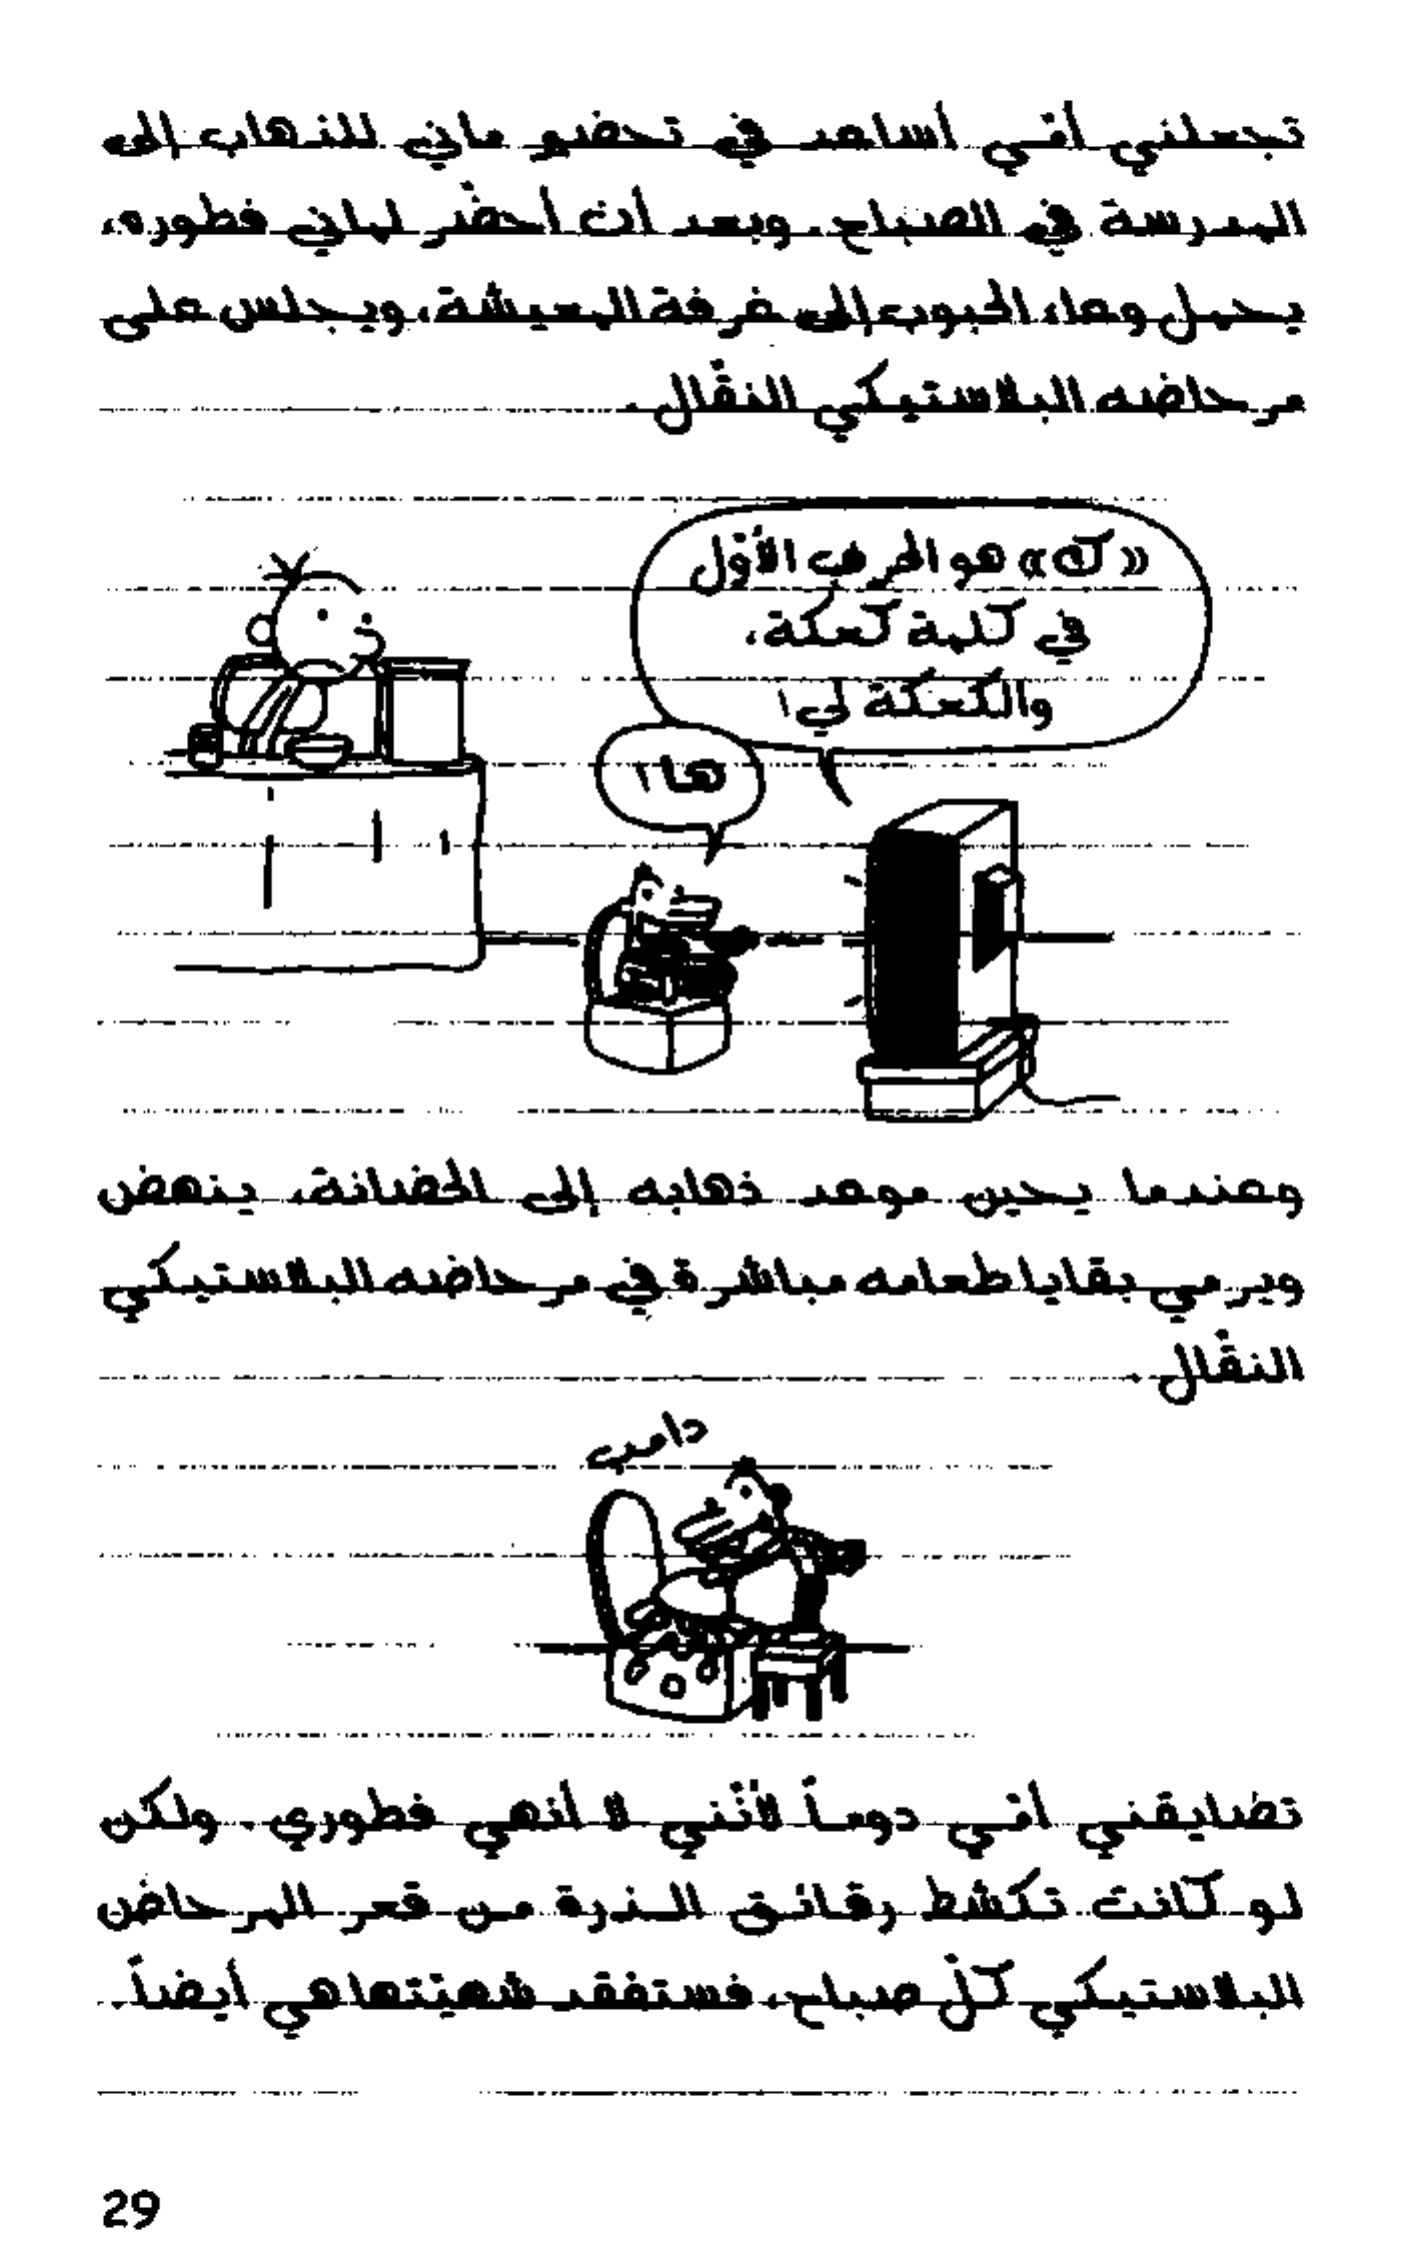 تجعلني أمّي أساعد في تحضير ماني للذهاب إلى
المدرسة في الصباح. وبعد أن أحضّر لماني فطوره،
يحمل وعاء الحبوب إلى غرفة المعيشة، ويجلس على
مرحاضه البلاستيكي النقّال.
«ك» هو الحرف الأوّل
في كلمة كعكة،
والكعكة لي!
ها!
وعندما يحين موعد ذهابه إلى الحضانة، ينهض
ويرمي بقايا طعامه مباشرة في مرحاضه البلاستيكي
النقّال.
دامب
تضايقني أمّي دوماً لأنّني لا أنهي فطوري. ولكن
لو كانت تكشط رقائق الذرة من قعر المرحاض
البلاستيكي كلّ صباح، فستفقد شهيّتها هي أيضاً.
29